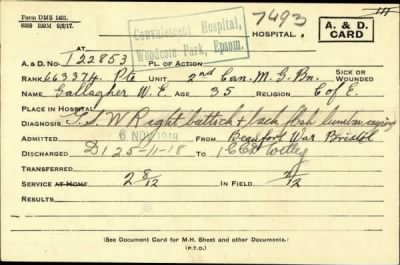 Form DMS 1401.
8239 100M 9/2/17.
Convalescent Hospital,
Woodcote Park, Epsom.
7493
111
HOSPITAL.
A. & D. CARD
AT
A. & D. No. T22853 PL. OF ACTION
RANK 663374 Pte UNIT 2nd Can. M.G. Bn. SICK OR WOUNDED
NAME Gallagher W. E. AGE 35 RELIGION C of E.
PLACE IN HOSPITAL
DIAGNOSIS G.S.W Right buttock + back flesh lumbar region
ADMITTED 6 NOV 1918 FROM Beaufort War Bristol
DISCHARGED D1 25-11-18 TO 1 CCD Witley
TRANSFERRED
SERVICE AT HOME 2 8/12 IN FIELD /12
RESULTS
(See Document Card for M.H. Sheet and other Documents.)
(P.T.O.)